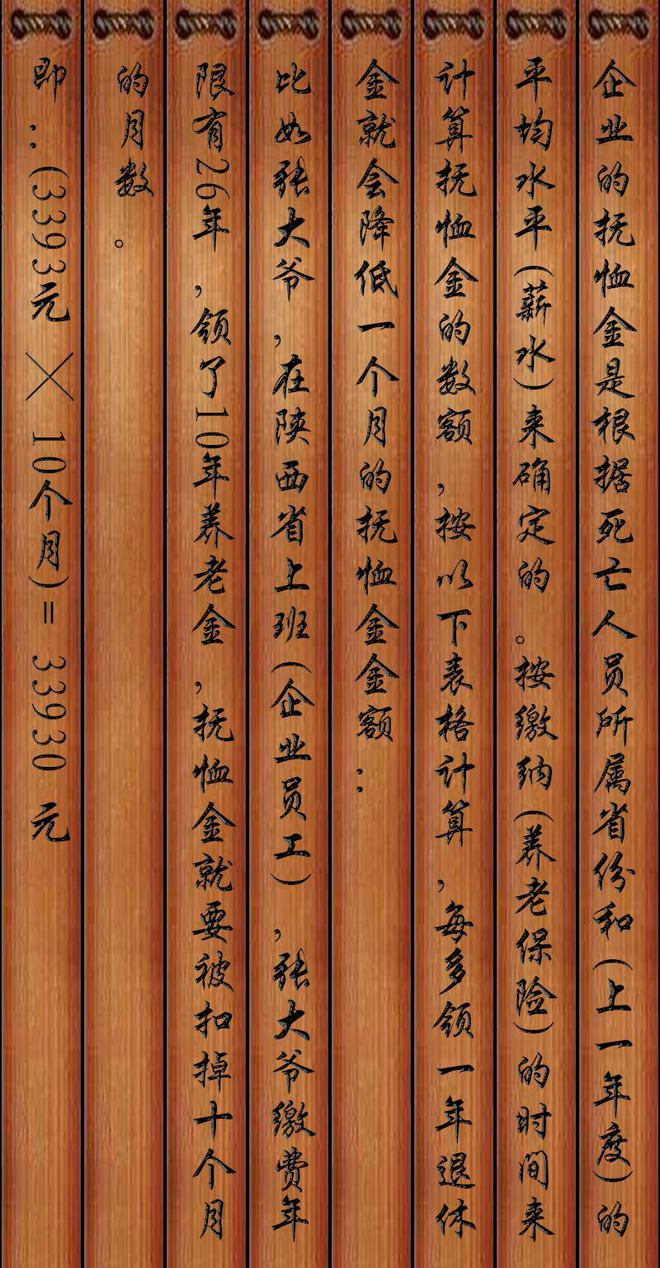 企业的抚恤金是根据死亡人员所属省份和(上一年度)的
平均水平(薪水)来确定的。按缴纳(养老保险)的时间来
计算抚恤金的数额,按以下表格计算,每多领一年退休
金就会降低一个月的抚恤金金额:
比如张大爷,在陕西省上班(企业员工),张大爷缴费年
限有26年,领了10年养老金,抚恤金就要被扣掉十个月
的月数。
即:(3393元 × 10个月)= 33930 元